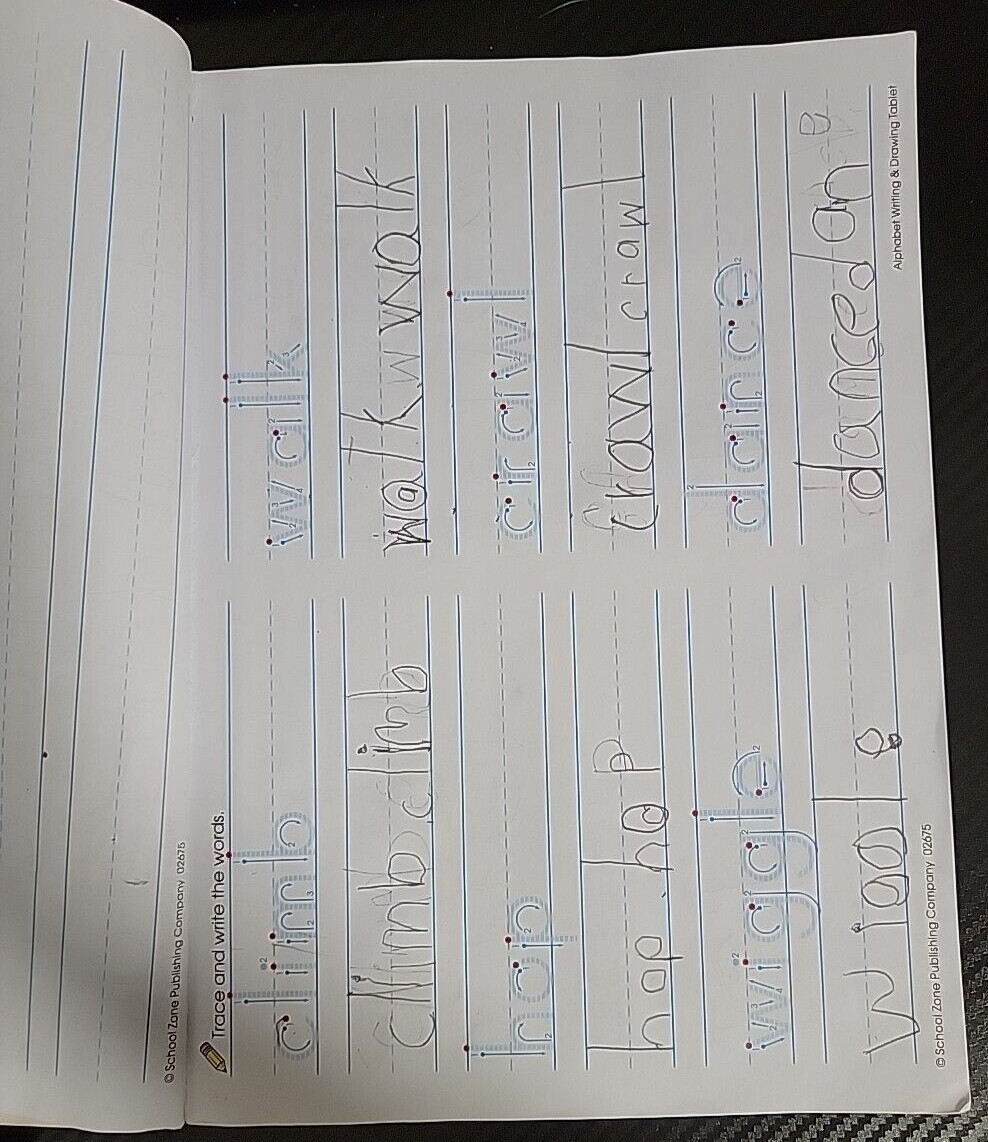 © School Zone Publishing Company 02675
Trace and write the words.
climb walk
climb climb walk w walk
hop crawl
hop hop crawl crawl
wiggle dance
wiggle dance dance
© School Zone Publishing Company 02675 Alphabet Writing & Drawing Tablet